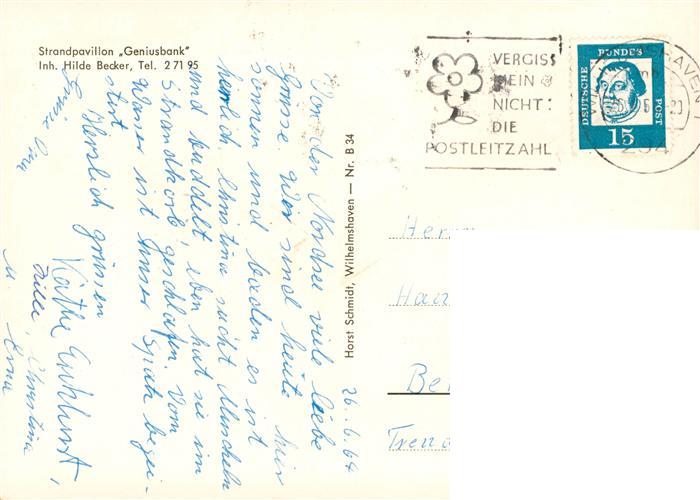 Strandpavillon „Geniusbank"
Inh. Hilde Becker, Tel. 2 71 95
VERGISS
MEIN
NICHT:
DIE
POSTLEITZAHL
DEUTSCHE
BUNDES
POST
15
Horst Schmidt, Wilhelmshaven — Nr. B 34
26.6.64
Von der Nordsee viele liebe
Grüsse. Wir sind heute hier
sonnen und baden es ist
herrlich. Christina sucht Muscheln
und buddelt, eben hat sie im
Strandkorb geschlafen. Vom
Wasser ist unser Spatz begei-
stert
Herzlich grüssen
Käthe
Christina
u. Erna
Herr
Han
Be